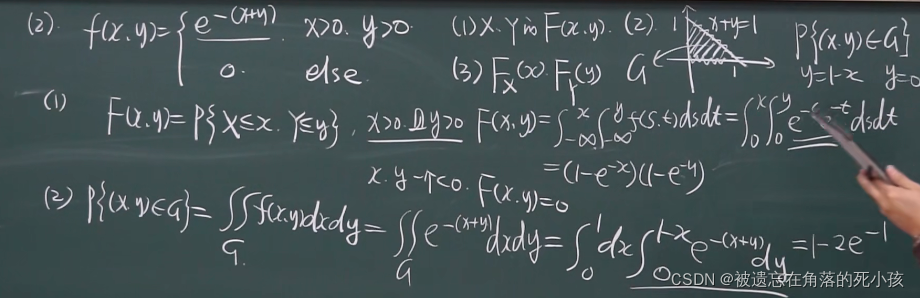 (2). f(x,y)={ e^-(x+y). x>0. y>0 (1) X.Y的 F(x,y). (2). 1 x+y=1 P{(x,y)∈G}
0. else. (3) F_X(x). F_Y(y) G 1 y=1-x y=0
(1) F(x,y)=P{X≤x. Y≤y}, x>0.且y>0 F(x,y)=∫_{-∞}^{x}∫_{-∞}^{y}f(s,t)dsdt=∫_0^x∫_0^y e^-s -t dsdt
x.y一个<0. F(x,y)=0 =(1-e^-x)(1-e^-y)
(2) P{(x,y)∈G}=∬_G f(x,y)dxdy=∬_G e^-(x+y) dxdy=∫_0^1 dx∫_0^{1-x} e^-(x+y) dy=1-2e^-1
CSDN @被遗忘在角落的死小孩